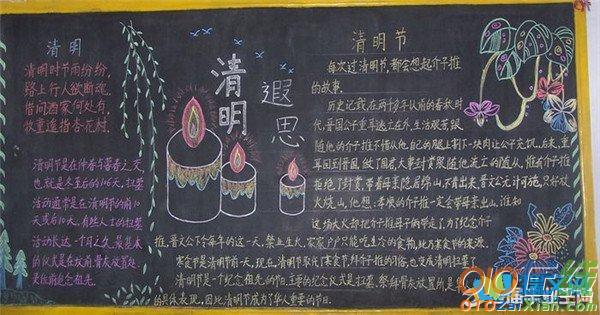 清明
清明时节雨纷纷,
路上行人欲断魂。
借问酒家何处有,
牧童遥指杏花村。
清明节是在仲春与暮春之交,
也就是冬至后的106天。扫墓
活动通常是在清明节的前10
天或后10天。有些人士的扫墓
活动长达一个月之久。最基本
的仪式是在坟前、骨灰放置处
灵位前追念祖先。
清明
遐思
清明节
每次过清明节,都会想起介子推
的故事。
历史记载,在两千多年以前的春秋时
代,晋国公子重耳逃亡在外,生活艰苦跟
随他的介子推不惜从他自己的腿上割下一块肉让公子充饥。后来,重
耳回到晋国,做了国君大事封赏跟随他流亡的随从,惟有介子推
拒绝了封赏,带着母亲隐居绵山,不肯出来。晋文公无计可施,只好放
火烧山,他想,孝顺的介子推一定会带母亲出山。谁知
这场大火却把介子推母子俩带走了,为了纪念介子
推,晋文公下令每年的这一天,禁止生火,家家户户只能吃生冷的食物,此乃寒食节的来源。
寒食节是清明节前一天。现在,清明节取代了寒食节,拜介子推的习俗,也变成清明扫墓了
清明节是一个纪念祖先的节日。主要的纪念仪式是扫墓、祭拜骨灰放置所是
的具体表现。因此,清明节成为了华人重要的节日。
OioZaiXian.Com